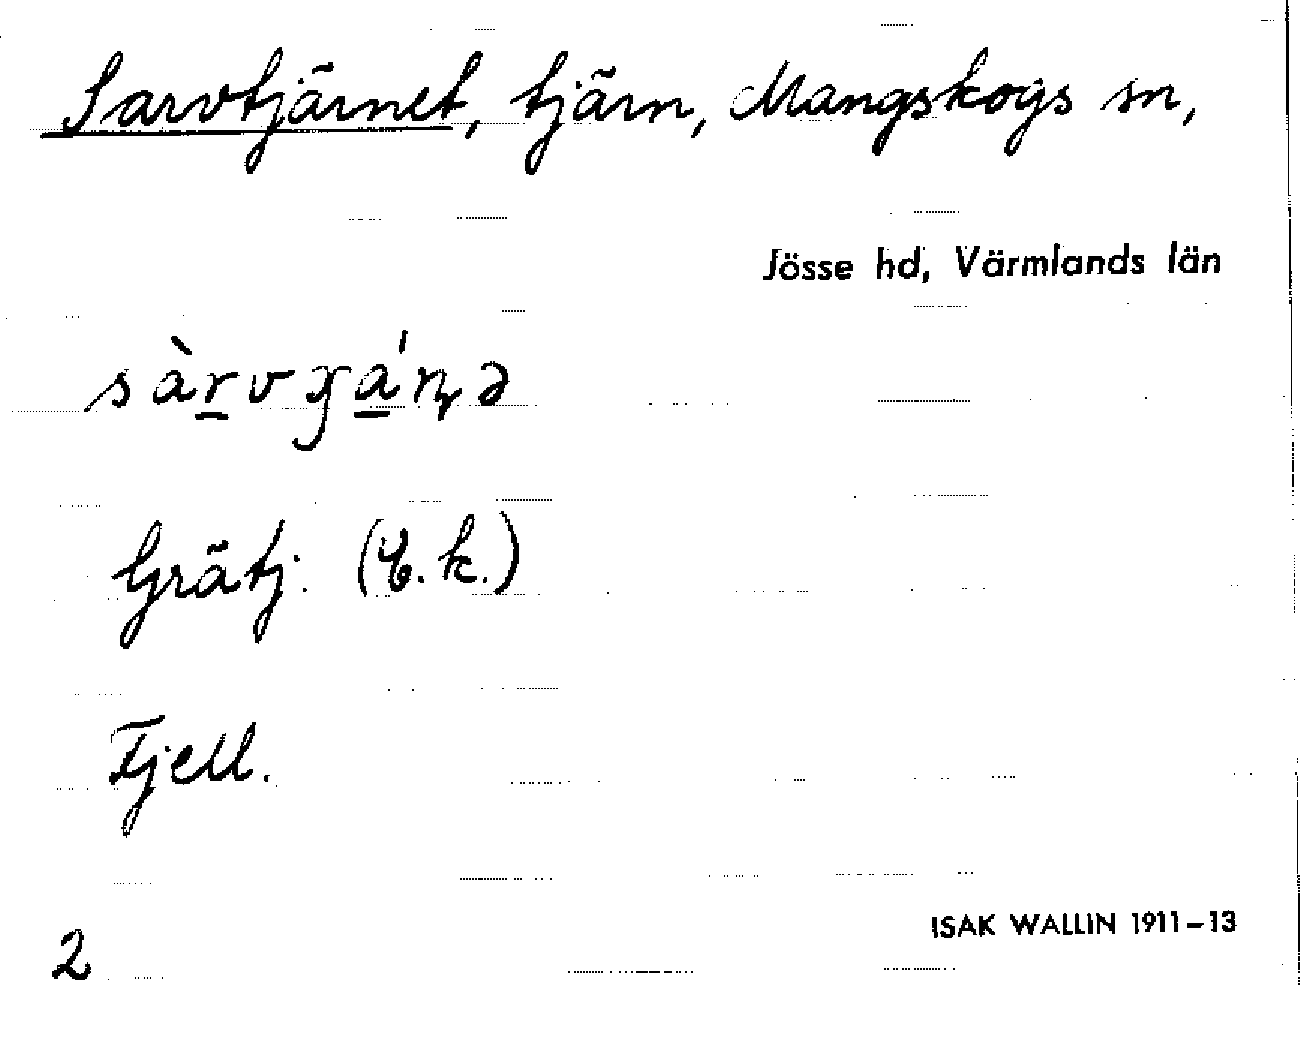 Sarvtjärnet, tjärn, Mangskogs sn,
Jösse hd, Värmlands län
sàrvɣáɳə
Grätj. (E.k.)
Fjell.
2
ISAK WALLIN 1911–13